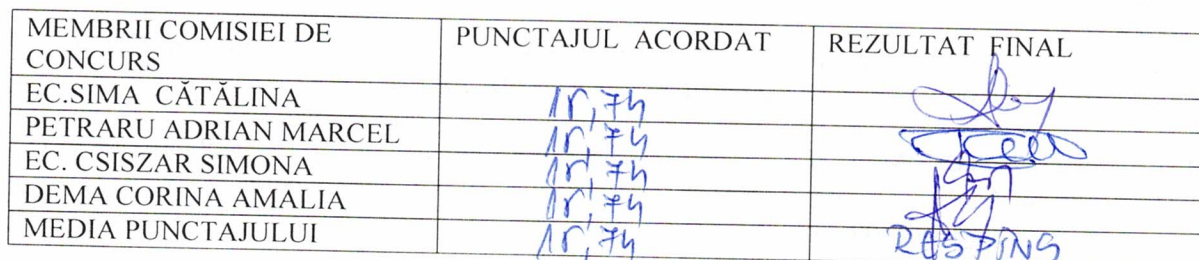 MEMBRII COMISIEI DE CONCURS PUNCTAJUL ACORDAT REZULTAT FINAL
EC.SIMA CĂTĂLINA 15,74
PETRARU ADRIAN MARCEL 15,74
EC. CSISZAR SIMONA 15,74
DEMA CORINA AMALIA 15,74
MEDIA PUNCTAJULUI 15,74 RESPINS